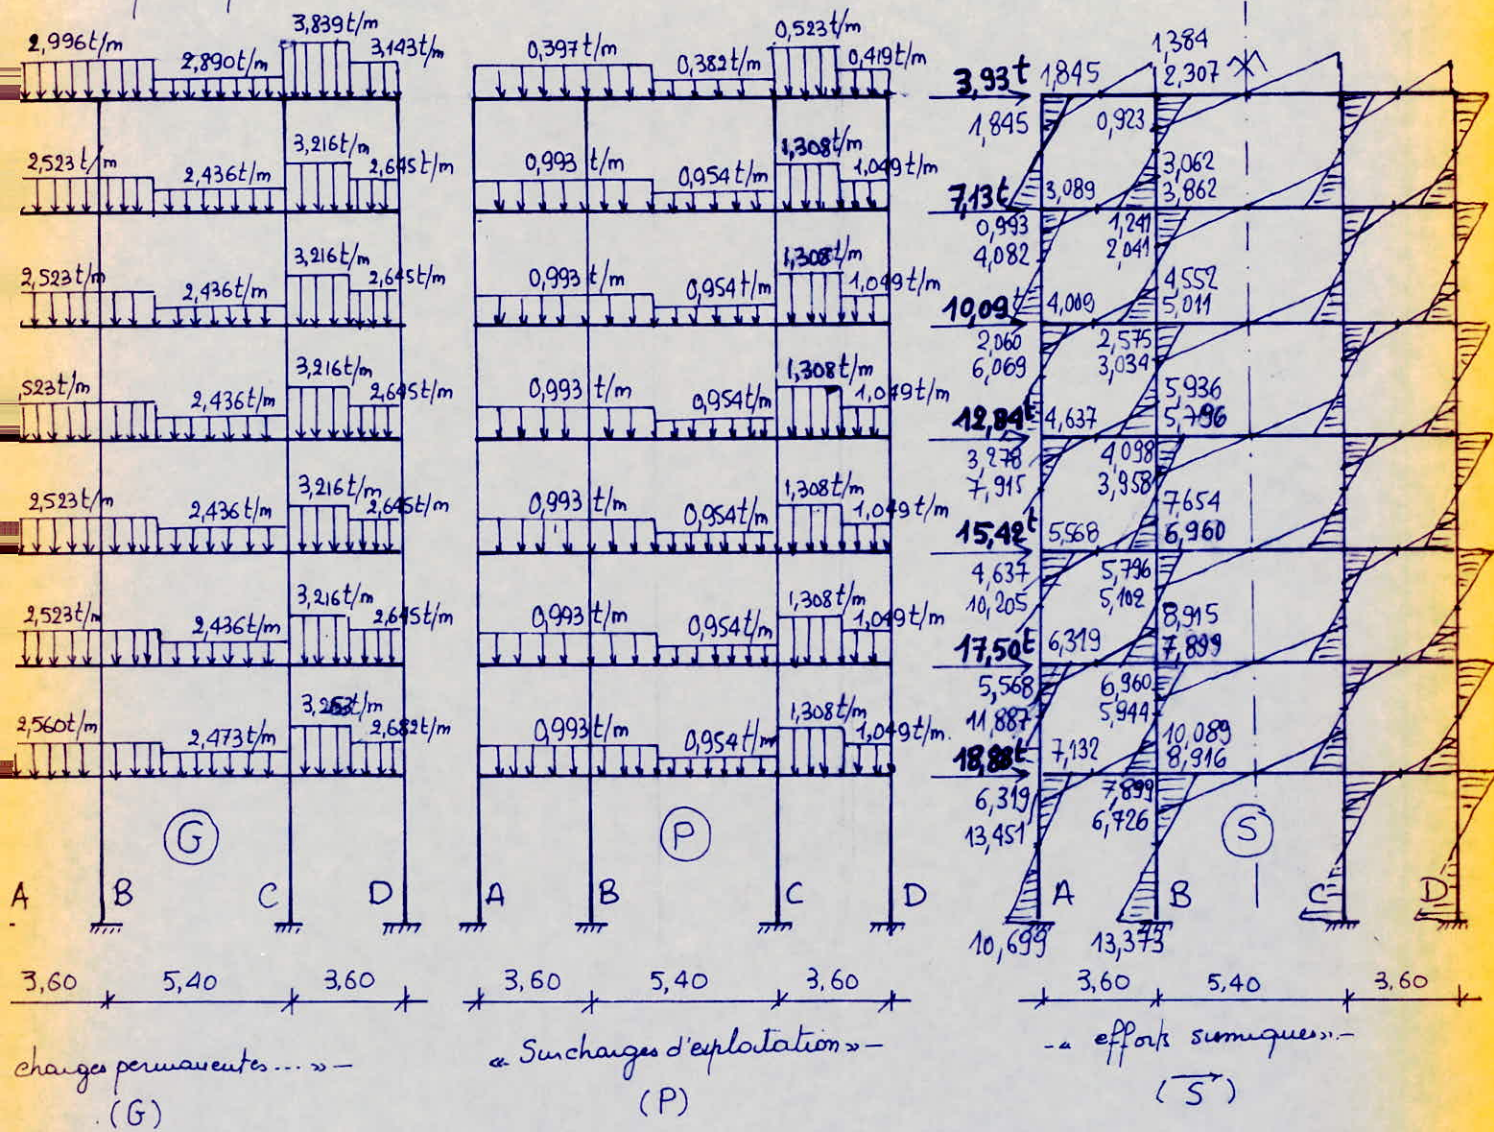 2,996t/m 2,890t/m 3,839t/m 3,143t/m
2,523t/m 2,436t/m 3,216t/m 2,645t/m
2,523t/m 2,436t/m 3,216t/m 2,645t/m
,523t/m 2,436t/m 3,216t/m 2,645t/m
2,523t/m 2,436t/m 3,216t/m 2,645t/m
2,523t/m 2,436t/m 3,216t/m 2,645t/m
2,560t/m 2,473t/m 2,682t/m
G
A B C D
3,60 5,40 3,60
charges permanentes... »-
(G)
0,397 t/m 0,382t/m 0,523t/m 0,419t/m
0,993 t/m 0,954t/m 1,308t/m 1,049t/m
0,993 t/m 0,954t/m 1,308t/m 1,049t/m
0,993 t/m 0,954t/m 1,308t/m 1,049t/m
0,993 t/m 0,954t/m 1,308t/m 1,049t/m
0,993 t/m 0,954t/m 1,308t/m 1,049t/m
0,993 t/m 0,954t/m 1,308t/m 1,049t/m.
P
A B C D
3,60 5,40 3,60
« Surcharges d'exploitation »-
(P)
1,384
3,93t 1,845 2,307
1,845 0,923
3,062
7,13t 3,089 3,862
0,993 1,241
4,082 2,041
4,552
10,09t 4,009 5,011
2,060 2,575
6,069 3,034
5,936
12,84t 4,637 5,796
3,278 4,098
7,915 3,958
7,654
15,42t 5,568 6,960
4,637 5,796
10,205 5,102
8,915
17,50t 6,319 7,899
5,568 6,960
11,887 5,944
10,089
18,88t 7,132 8,916
6,319 7,899
13,451 6,726
S
A B C D
10,699 13,373
3,60 5,40 3,60
-« efforts sismiques».-
(S)